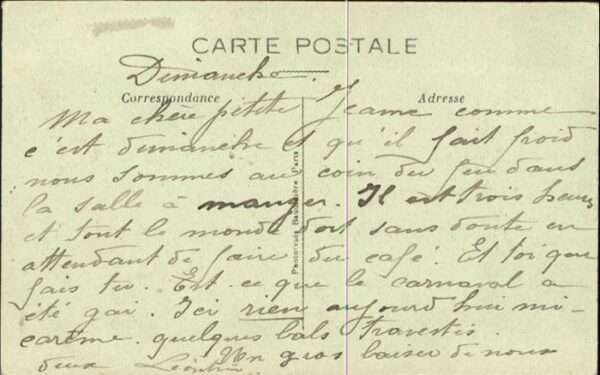 CARTE POSTALE
Dimanche.
Correspondance
Adresse
Ma chère petite Jeanne comme
c'est dimanche et qu'il fait froid
nous sommes au coin du feu dans
la salle à manger. Il est trois heures
et tout le monde dort sans doute en
attendant de faire du café. Et toi que
fais tu. Est-ce que le carnaval a
été gai. Ici rien aujourd'hui mi-
carême. quelques bals travestis.
Un gros baiser de nous
deux